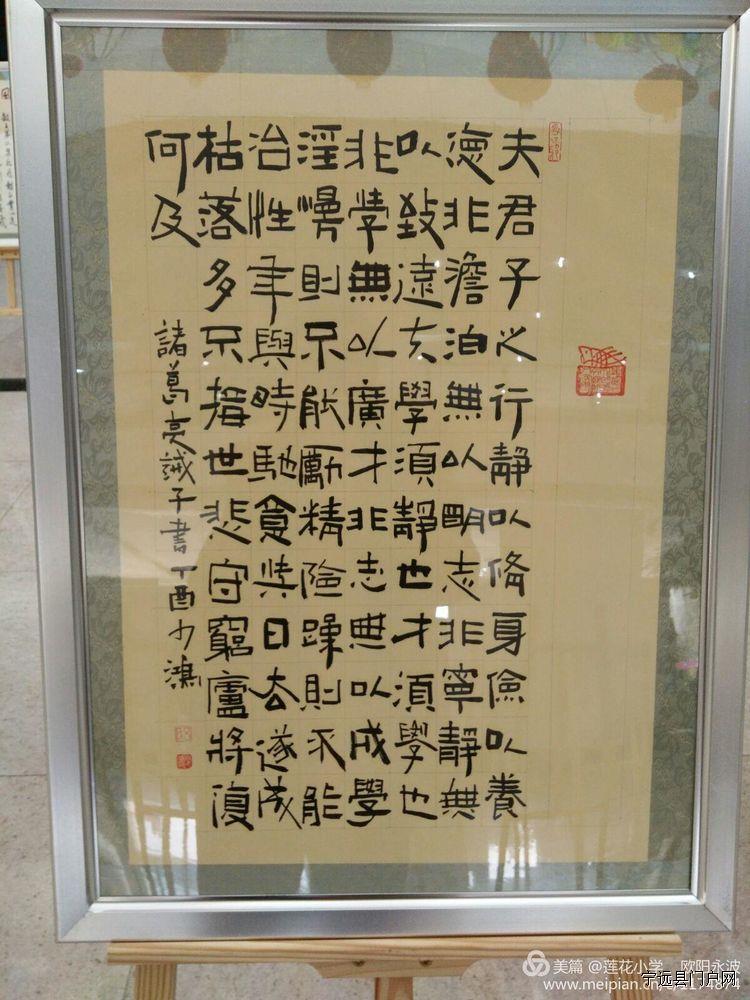 夫君子之行靜以脩身儉以養
德非澹泊無以明志非寧靜無
以致遠夫學須靜也才須學也
非學無以廣才非志無以成學
淫慢則不能勵精險躁則不能
治性年與時馳意與日去遂成
枯落多不接世悲守窮廬將復
何及
諸葛亮誡子書丁酉少
美篇 @莲花小学 欧阳永波
www.meipian.cn
宁远县门户网